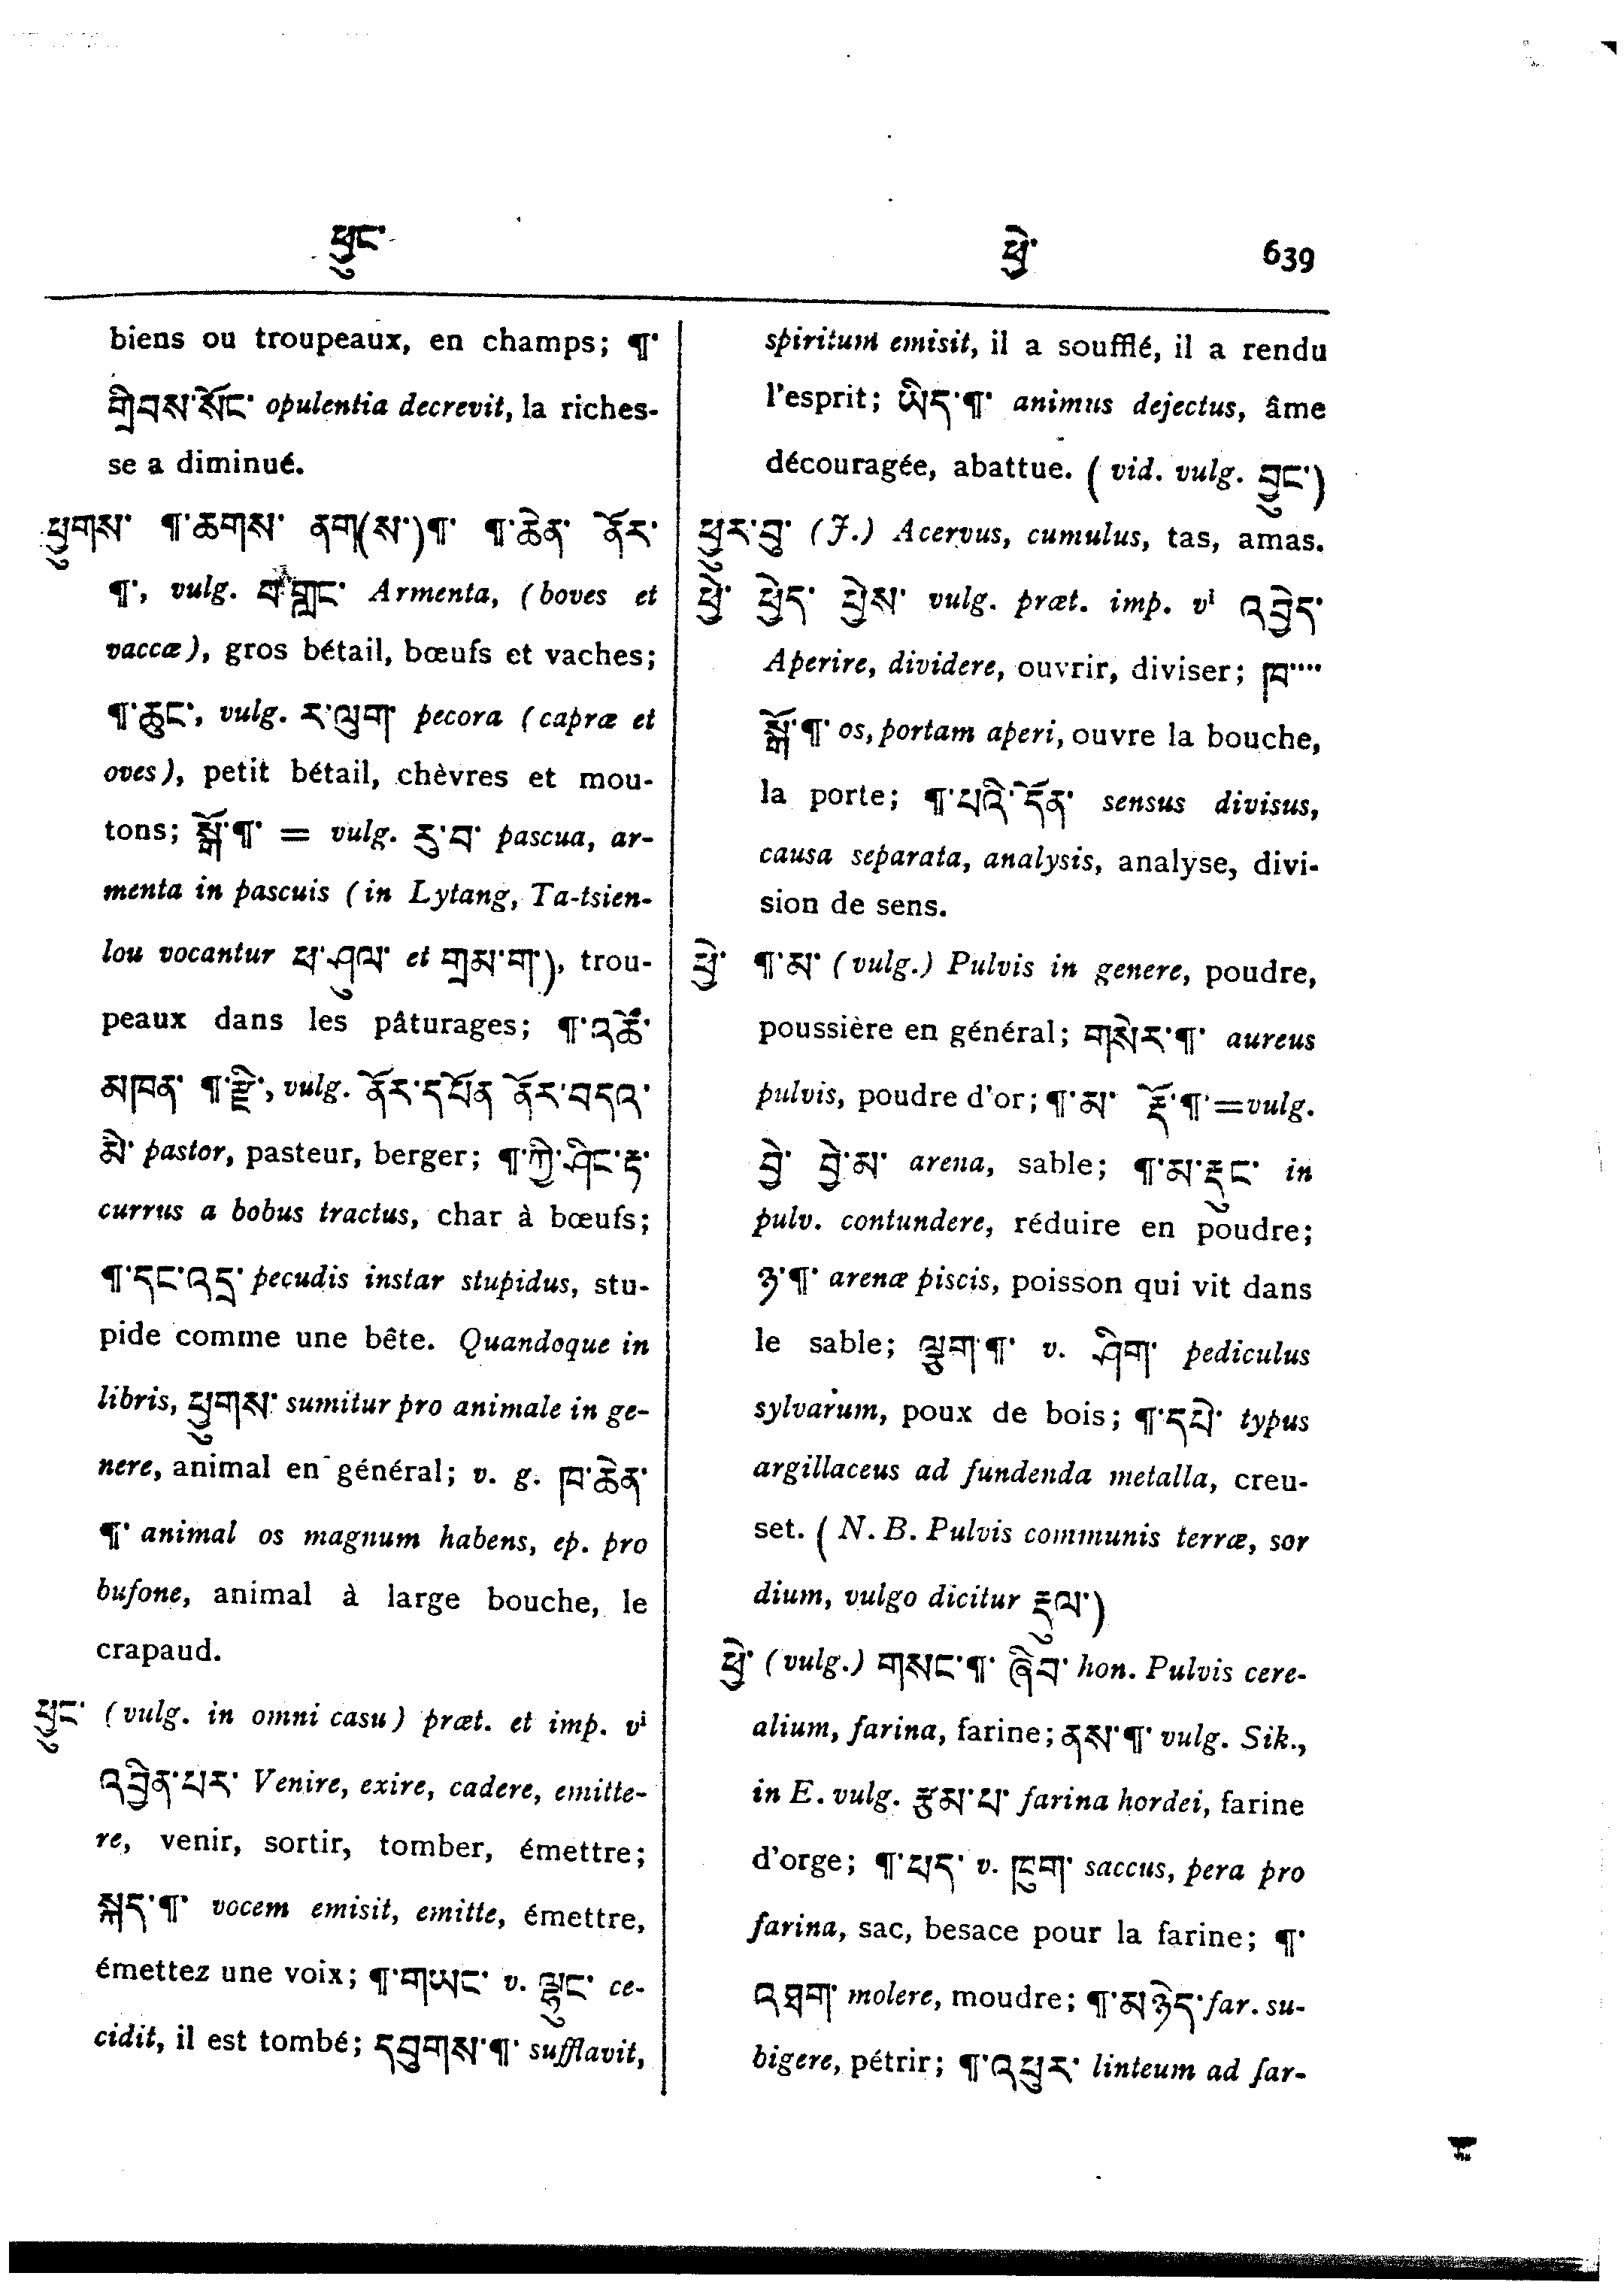 ཕྱུང་
ཕྱེ་ 639
biens ou troupeaux, en champs; ¶་
གྲིབས་སོང་ opulentia decrevit, la riches-
se a diminué.
ཕྱུགས་ ¶་ཆགས་ ནག(ས་)¶་ ¶་ཆེན་ ནོར་
¶་, vulg. བ་གླང་ Armenta, (boves et
vaccæ), gros bétail, bœufs et vaches;
¶་ཆུང་, vulg. ར་ལུག་ pecora (capræ et
oves), petit bétail, chèvres et mou-
tons; སྒོ་¶་ = vulg. རུ་བ་ pascua, ar-
menta in pascuis (in Lytang, Ta-tsien-
lou vocantur ཕ་ཤུལ་ et གྲམ་ག་), trou-
peaux dans les pâturages; ¶་འཚོ་
མཁན་ ¶་རྫི་, vulg. ནོར་དཔོན ནོར་བདའ་
མི་ pastor, pasteur, berger; ¶་ཀྱི་ཤིང་རྟ་
currus a bobus tractus, char à bœufs;
¶་དང་འདྲ་ pecudis instar stupidus, stu-
pide comme une bête. Quandoque in
libris, ཕྱུགས་ sumitur pro animale in ge-
nere, animal en général; v. g. ཁ་ཆེན་
¶་ animal os magnum habens, ep. pro
bufone, animal à large bouche, le
crapaud.
ཕྱུང་ (vulg. in omni casu) præt. et imp. vⁱ
འབྱིན་པར་ Venire, exire, cadere, emitte-
re, venir, sortir, tomber, émettre;
སྐད་¶་ vocem emisit, emitte, émettre,
émettez une voix; ¶་གཡང་ v. ལྷུང་ ce-
cidit, il est tombé; དབུགས་¶་ sufflavit,
spiritum emisit, il a soufflé, il a rendu
l'esprit; ཡིད་¶་ animus dejectus, âme
découragée, abattue. (vid. vulg. བྱུང་)
ཕྱུར་བུ་ (J.) Acervus, cumulus, tas, amas.
ཕྱེ་ ཕྱེད་ ཕྱེས་ vulg. præt. imp. vⁱ འབྱེད་
Aperire, dividere, ouvrir, diviser; ཁ་...
སྒོ་¶་ os, portam aperi, ouvre la bouche,
la porte; ¶་པའི་དོན་ sensus divisus,
causa separata, analysis, analyse, divi-
sion de sens.
ཕྱེ་ ¶་མ་ (vulg.) Pulvis in genere, poudre,
poussière en général; གསེར་¶་ aureus
pulvis, poudre d'or; ¶་མ་ རྡོ་¶་=vulg.
བྱེ་ བྱེ་མ་ arena, sable; ¶་མ་རྡུང་ in
pulv. contundere, réduire en poudre;
ཉ་¶་ arenæ piscis, poisson qui vit dans
le sable; ལྗུག་¶་ v. ཤིག་ pediculus
sylvarum, poux de bois; ¶་དཔེ་ typus
argillaceus ad fundenda metalla, creu-
set. (N. B. Pulvis communis terræ, sor
dium, vulgo dicitur རྡུལ་)
ཕྱེ་ (vulg.) གསང་¶་ ཞིབ་ hon. Pulvis cere-
alium, farina, farine; ནས་¶་ vulg. Sik.,
in E. vulg. རྩམ་པ་ farina hordei, farine
d'orge; ¶་པད་ v. ཁུག་ saccus, pera pro
farina, sac, besace pour la farine; ¶་
འཐག་ molere, moudre; ¶་མཉེད་ far. su-
bigere, pétrir; ¶་འཕུར་ linteum ad far-